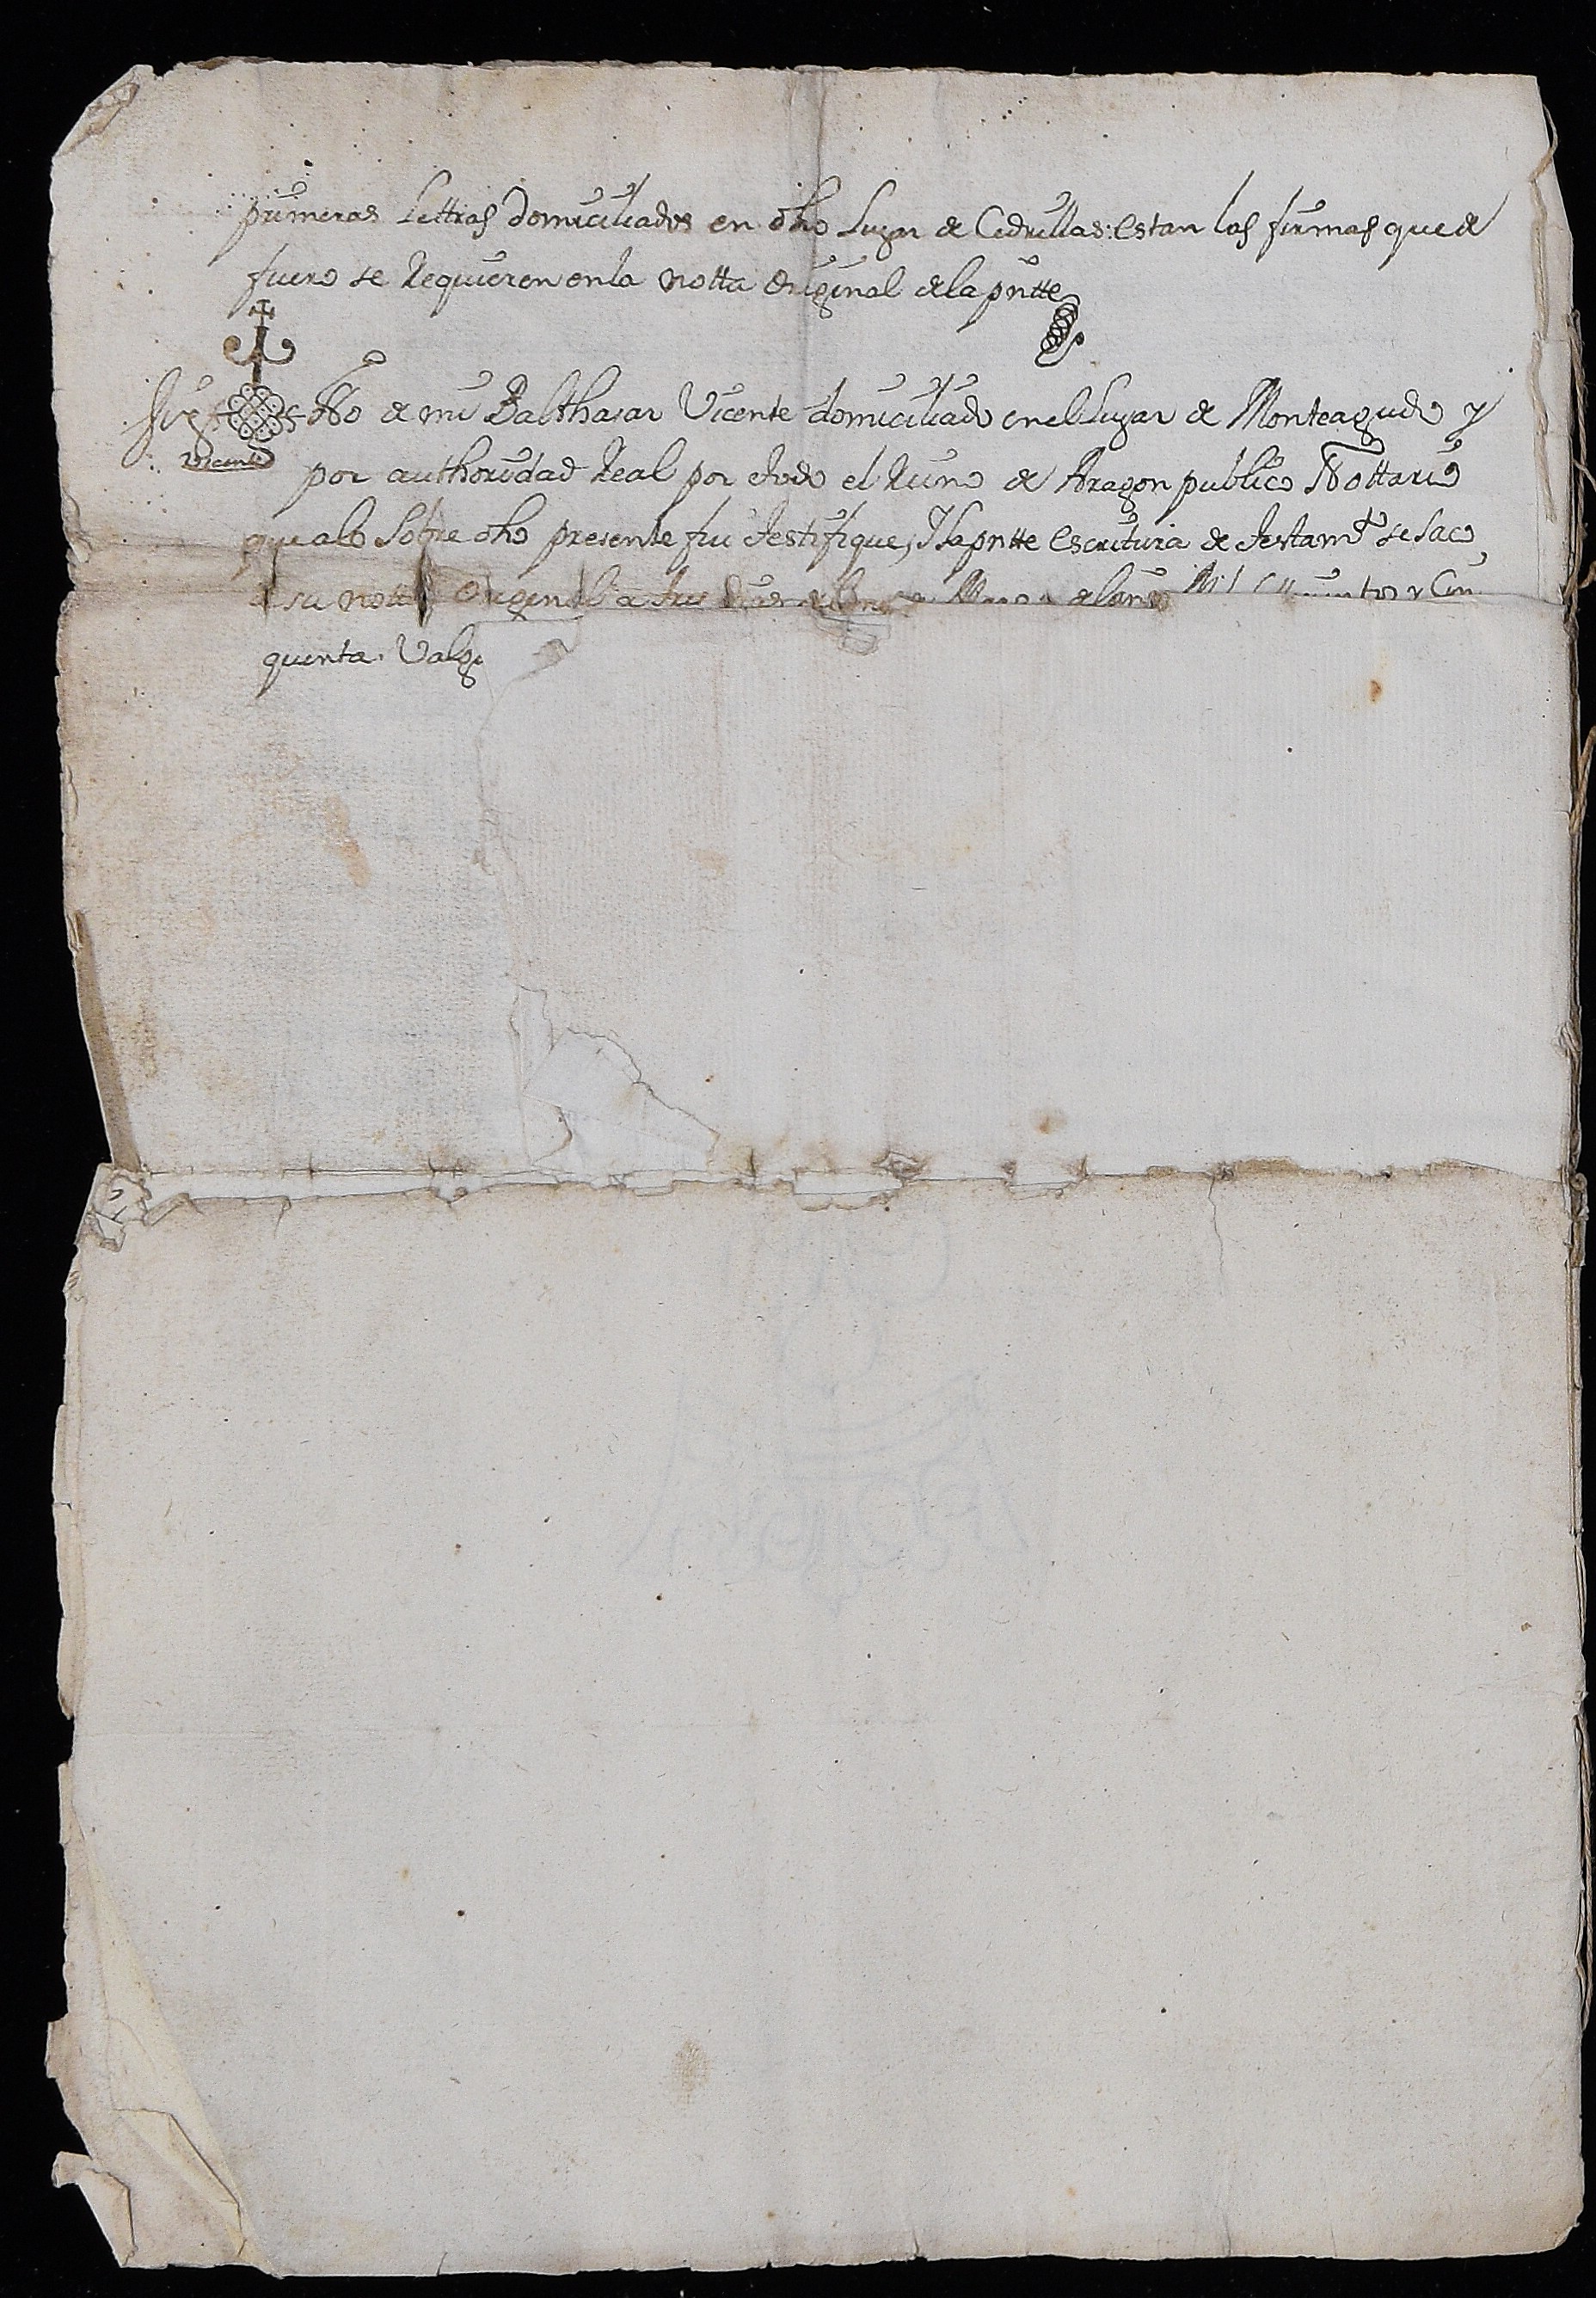 primeras lettras domiciliados en dho Lugar de Cedrillas: estan las firmas que de
fuero se requieren en la notta original de la pntte
Sig No de mi Balthasar Vicente domiciliado en el Lugar de Monteagudo y
Vicente
por authoridad Real por todo el Reino de Aragon publico Nottario
que a lo sobre dho presente fui testifique, Y la pntte escritura de testamto se saco
de su notta original a tres dias del de Mayo del año Mil y Cin
quenta. Valga